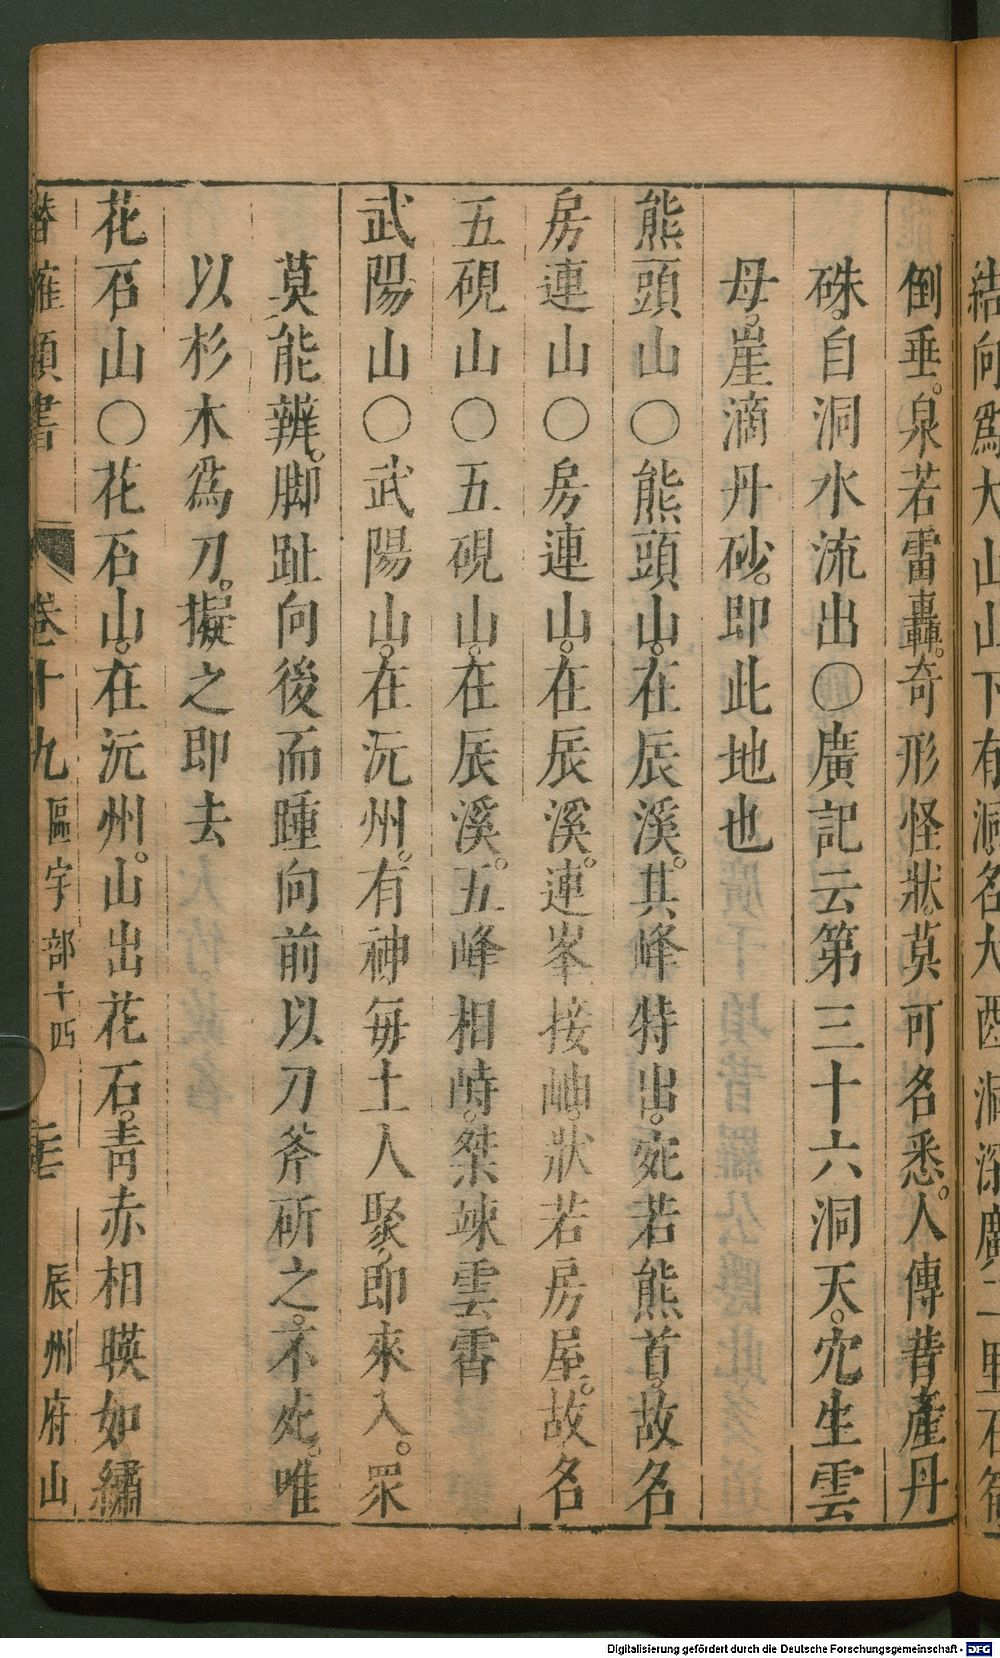 結向爲大山山下有洞名大酉洞深廣二里石
倒垂。泉若雷轟。奇形怪狀。莫可名悉。人傳昔產丹
硃。自洞水流出〇廣記云第三十六洞天。穴生雲
母。崖滴丹砂。即此地也
熊頭山〇熊頭山。在辰溪。其峰特出。宛若熊首。故名
房連山〇房連山。在辰溪。連峯接岫。狀若房屋。故名
五硯山〇五硯山。在辰溪。五峰相峙。桀竦雲霄
武陽山〇武陽山。在沅州。有神每土人聚。即來入。眾
莫能辨。脚趾向後而踵向前以刀斧斫之。不死。唯
以杉木爲刀。擬之即去
花石山〇花石山。在沅州。山出花石。靑赤相暎如繡
卷十九 區宇部十四 辰州府山
Digitalisierung gefördert durch die Deutsche Forschungsgemeinschaft - DFG